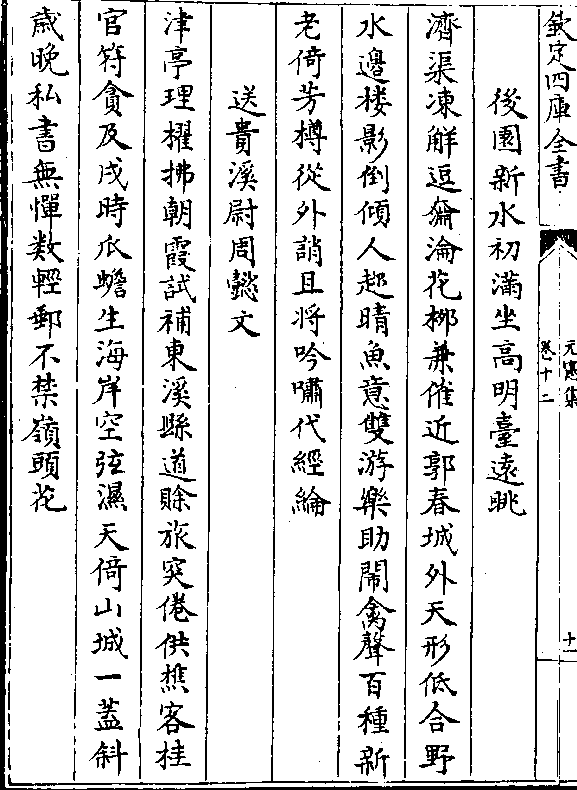 欽定四庫全書
元憲集
卷十二
十一
後園新水初滿坐高明臺遠眺
濟渠凍解逗奫淪花栁兼催近郭春城外天形低合野
水邊楼影倒傾人起晴魚意雙游樂助鬧禽聲百種新
老倚芳樽從外誚且将吟嘯代經綸
送貴溪尉周懿文
津亭理櫂拂朝霞試補東溪縣道賒旅突倦供樵客桂
官符貪及戍時瓜蟾生海岸空弦濕天倚山城一蓋斜
歳晚私書無憚数輕郵不禁嶺頭花